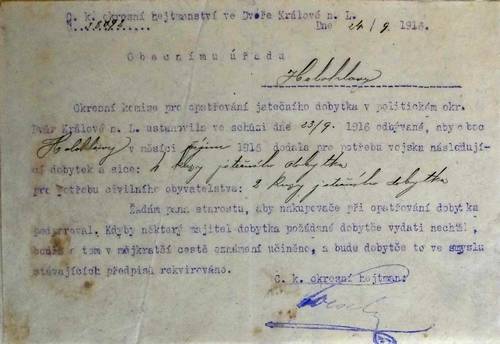 C. k. okresní hejtmanství ve Dvoře Králové n. L.
Dne 24/9. 1916.
Obecnímu úřadu
Holohlavy
Okresní komise pro opatřování jatečního dobytka v politickém okr.
Dvůr Králové n. L. ustanovila ve schůzi dne 23/9. 1916 odbývané, aby obec
Holohlavy v měsíci říjnu 1916 dodala pro potřebu vojska následují-
cí dobytek a sice: 4 kusy jatečního dobytka
pro potřebu civilního obyvatelstva: 2 kusy jatečního dobytka
Žádám pana starostu, aby nákupovače při opatřování dobytka
podporoval. Kdyby některý majitel dobytka požádání dobytče vydati nechtěl,
o tom v nejkratší cestě oznámení učiněno, a bude dobytče to ve smyslu
stávajících předpisů rekvirováno.
C. k. okresní hejtman: